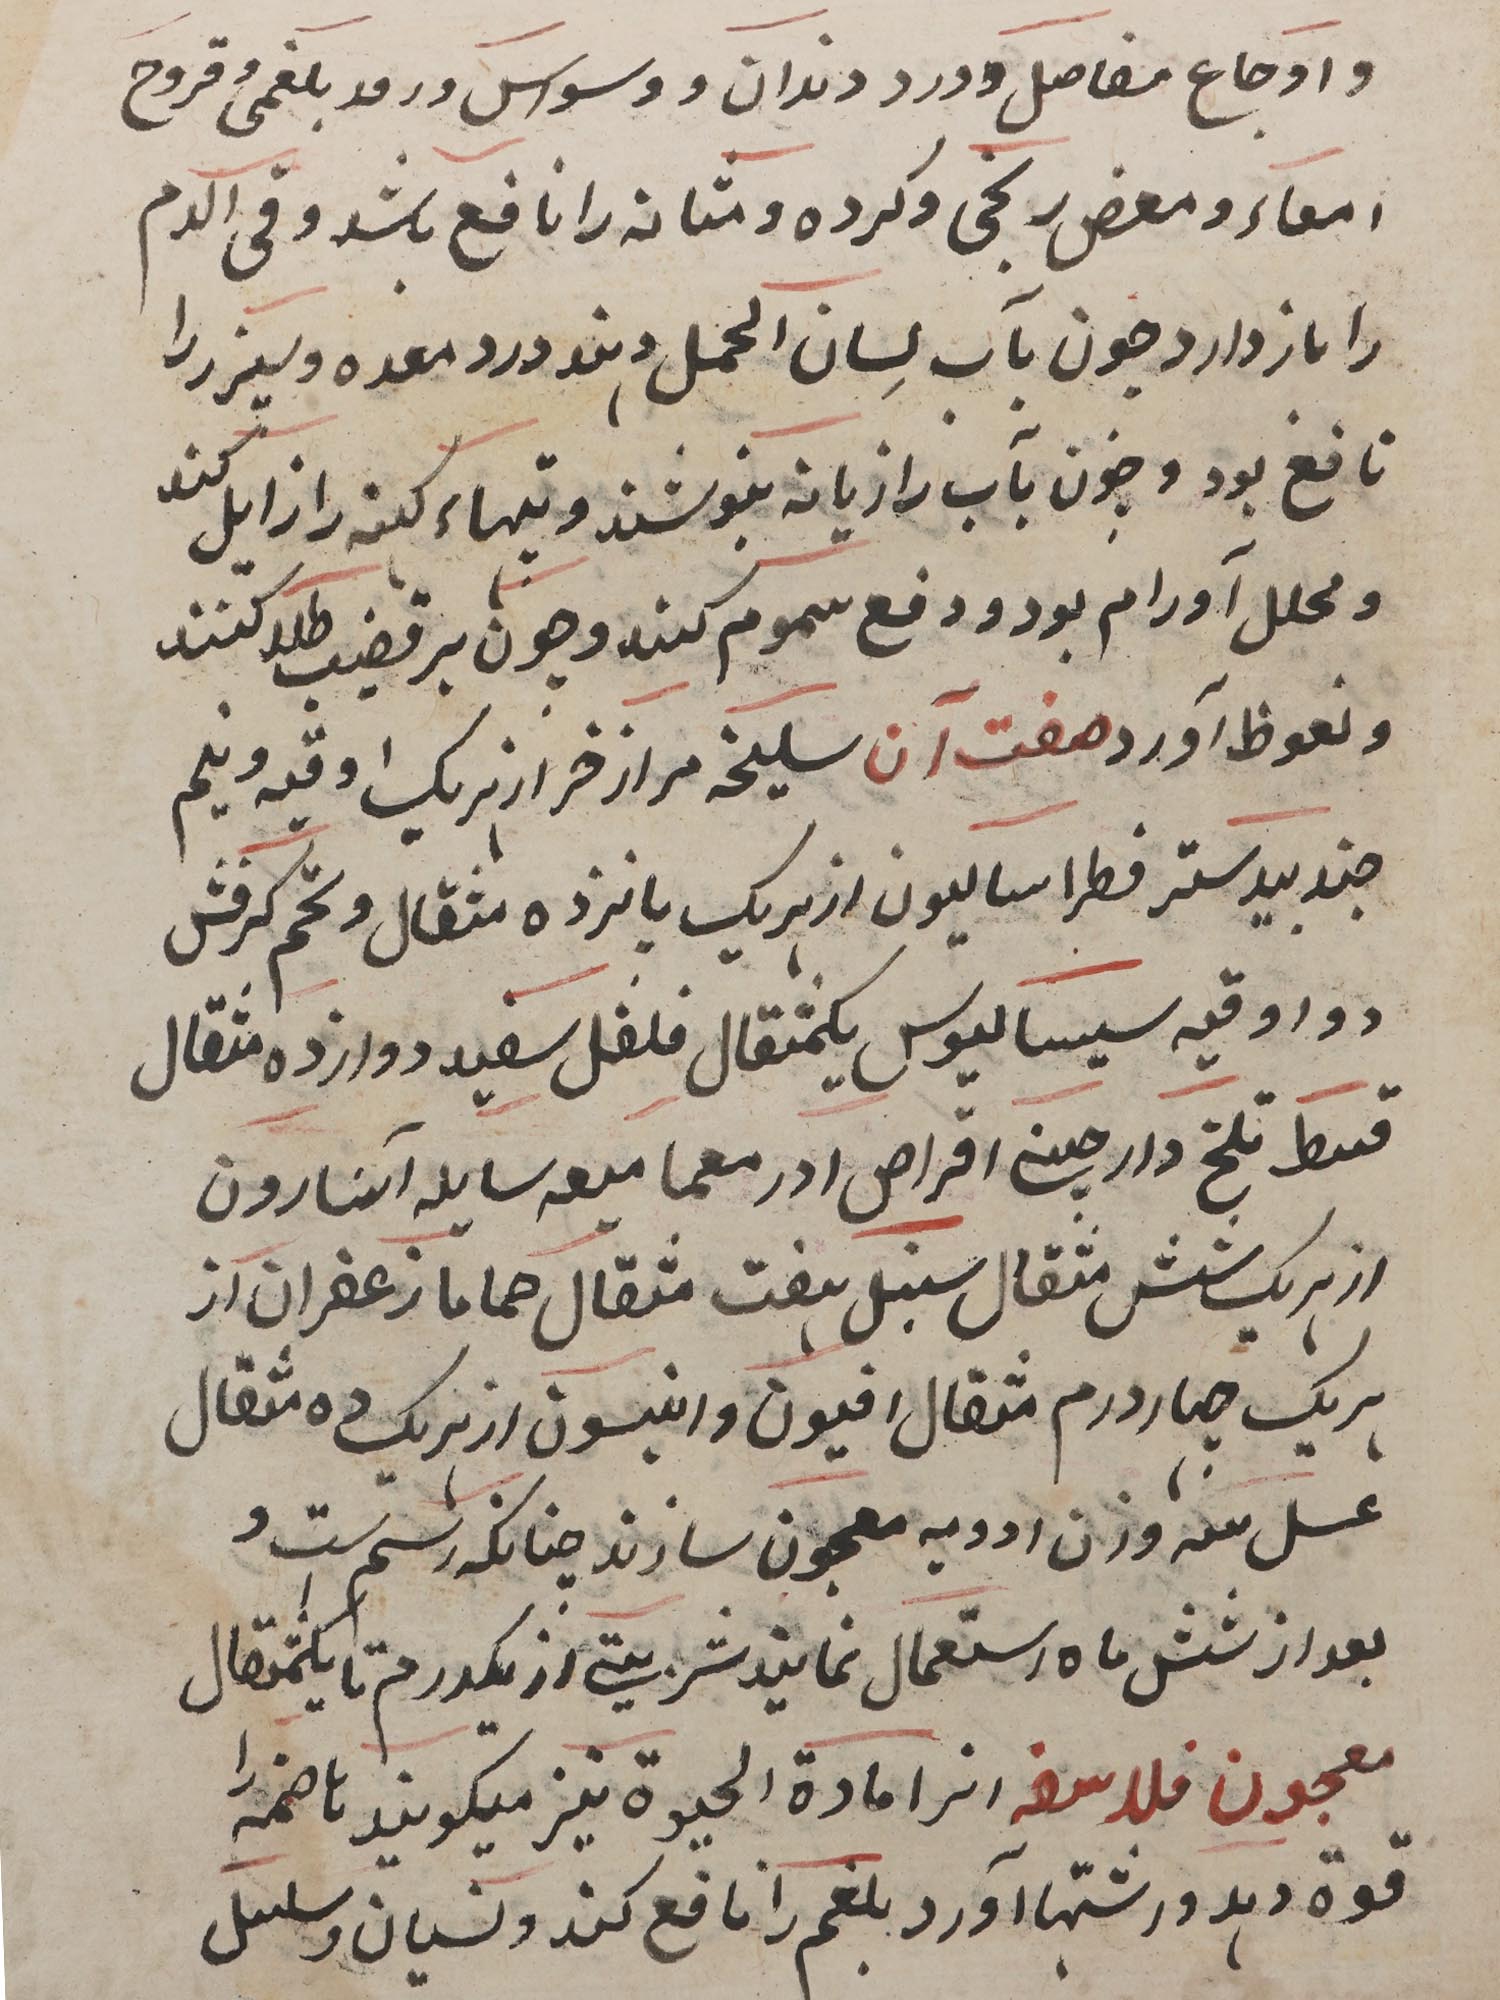 و اوجاع مفاصل و درد دندان و وسواس و رمد بلغمی و قروح
امعاء و مغص ریحی و کرده و مثانه را نافع باشد و قی الدم
را باز دارد چون بآب لسان الحمل دهند درد معده و سپرز را
نافع بود و چون بآب رازیانه بنوشند و تبهاء کهنه را زایل کند
و محلل اورام بود و دفع سموم کند و چون بر قضیب طلا کنند
و نعوظ آورد صفت آن سلیخه مر اذخر از هریک اوقیه و نیم
جند بیدستر فطراسالیون از هریک پانزده مثقال و تخم کرفش
دو اوقیه سیسالیوس یکمثقال فلفل سفید دوازده مثقال
قسط تلخ دارچینی اقراص ادرمعما میعه سایله اسارون
از هریک شش مثقال سنبل هفت مثقال حماما زعفران از
هریک چهار درم مثقال افیون و انیسون از هریک ده مثقال
عسل سه وزن ادویه معجون سازند چنانکه رسم است و
بعد از شش ماه استعمال نمایند شربتی از یکدرم تا یکمثقال
معجون فلاسفه انرا مادة الحیوة نیز میکویند هاضمه را
قوة دهد و اشتها آورد بلغم را نافع کند و نسیان و سلسل